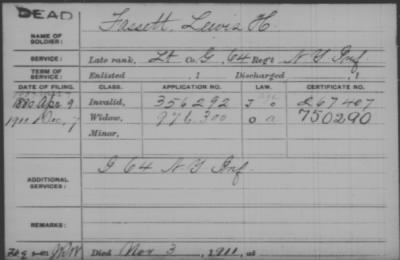 DEAD
NAME OF SOLDIER: Fassett, Lewis H.
SERVICE: Late rank, Lt Co. G, 64 Reg't N Y Inf.
TERM OF SERVICE: Enlisted , 1 Discharged , 1
DATE OF FILING. CLASS. APPLICATION NO. LAW. CERTIFICATE NO.
1880 Apr 9 Invalid, 356292 267407
1911 Dec. 7 Widow, 976.300 750290
Minor,
ADDITIONAL SERVICES: G 64 N Y Inf.
REMARKS:
Died Nov 3, 1911, at